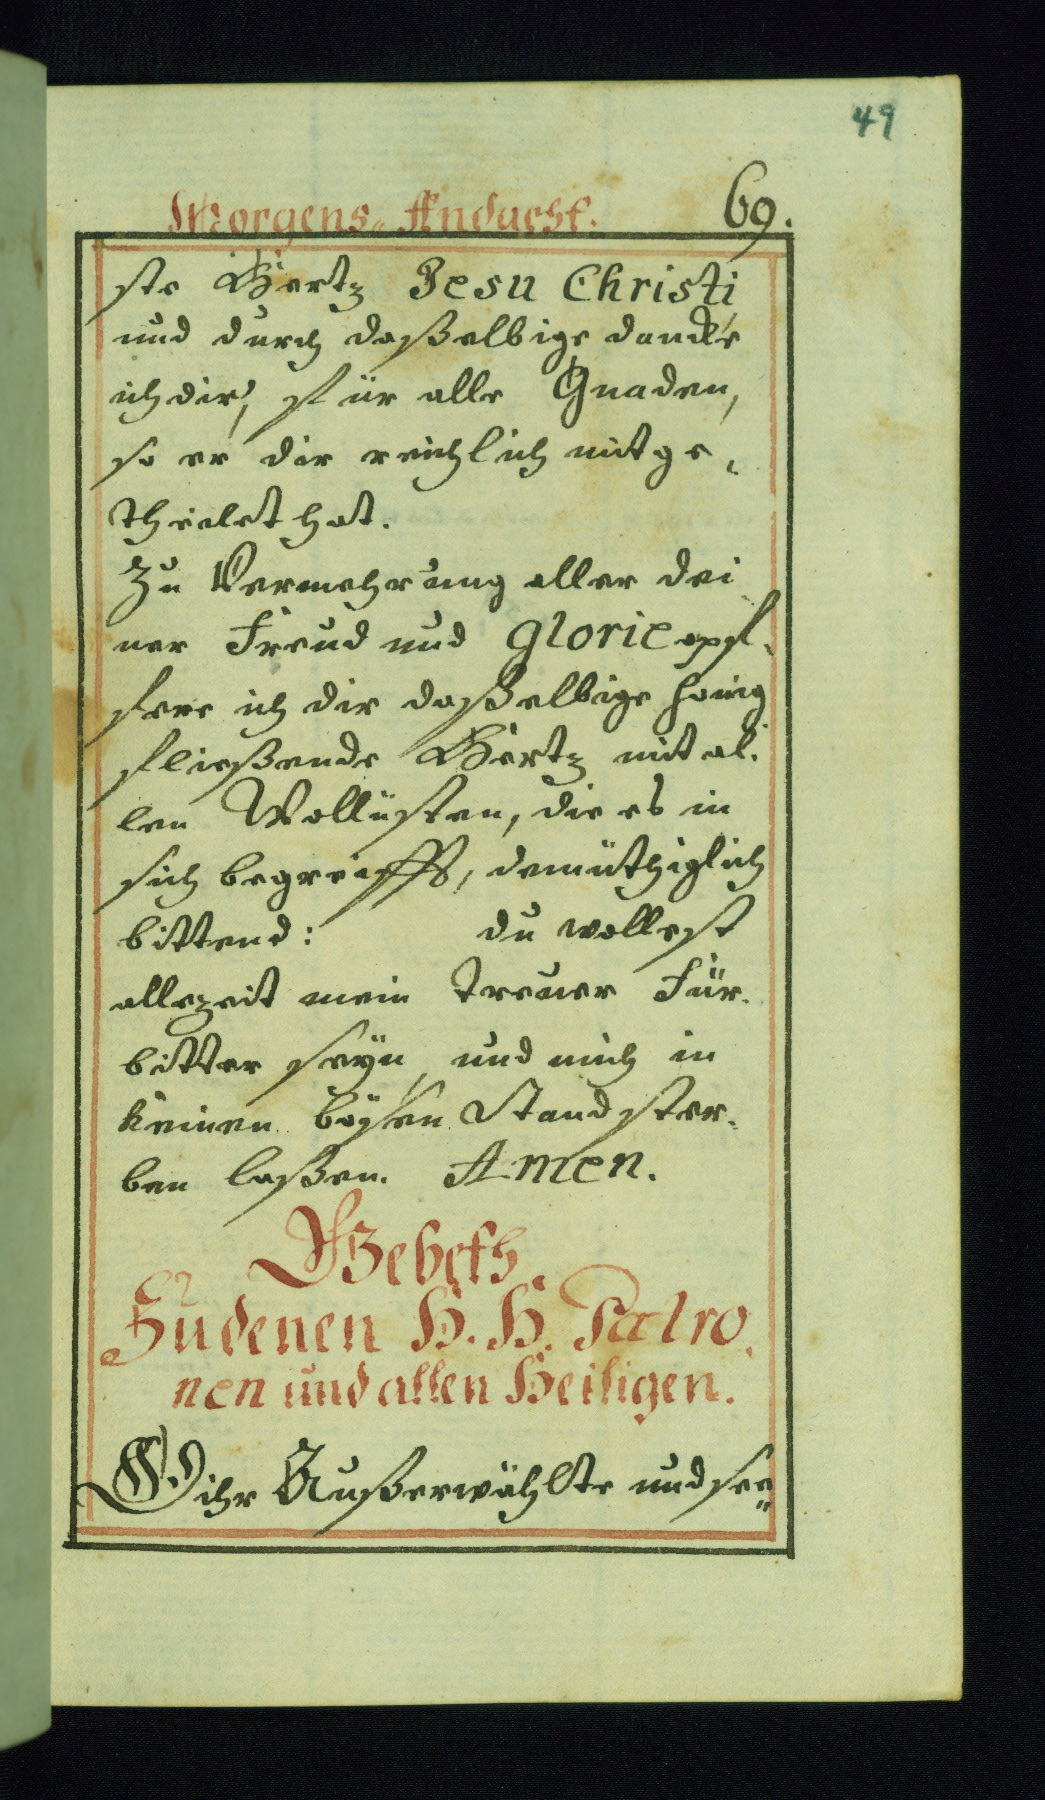 49
Morgens-Andacht. 69.
ste Hertz Jesu Christi
und durch daßelbige dancke
ich dir, für alle Gnaden,
so er dir reichlich mitge-
theilet hat.
Zu Vermehrung aller dei
ner Freud und Glorie opf-
fere ich dir daßelbige honig
fließende Hertz mit al-
len Wollüsten, die es in
sich begreifft, demüthiglich
bittend: du wollest
allezeit mein treuer Für-
bitter seÿn, und mich in
keinen bösen Stand ster-
ben laßen. Amen.
Gebeth
Zu denen H. H. Patro-
nen und allen Heiligen.
O ihr Außerwählte und see=